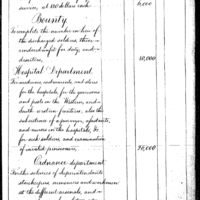 service, at 120 dollars each 6,000
Bounty
To complete the number in lieu of
the discharged soldiers, those
rendered unfit for duty, and
deserters, 10,000
Hospital Department
For medicines, instruments, and stores
for the hospitals, for the garrisons
and posts on the Western and
western frontiers, also the
subsistence of surgeons,
and nurses in the hospitals, &c
for sick soldiers, and examination
of
76,000
Ordnance department
For the salaries of superintendents
storekeepers, armourers and workmen
at the different arsenals, and